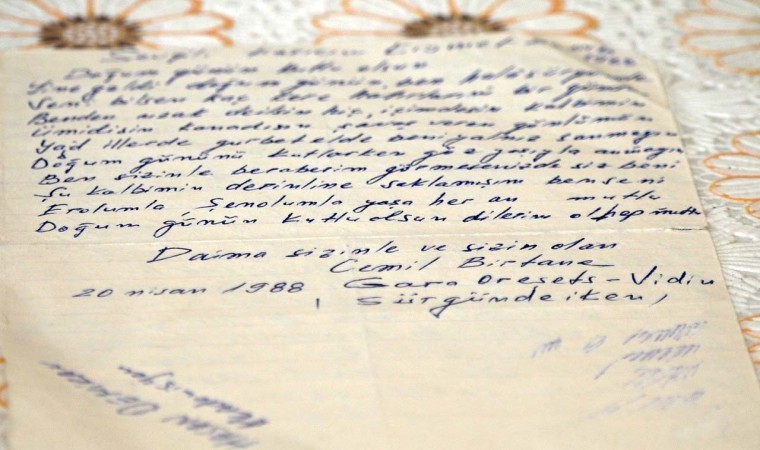 Sevgili karıcım
1988
Doğum günün kutlu olsun
Yine geldi doğum günün ben hala sürgünde
Seni bilsen kaç kere hatırlarım bir günde
Benden uzak değilsin hiç, içimdesin kalbimin
Ümidisin kanadısın veren gönlümün
Yad illerde gurbetelde beni yalnız sanmayın
Doğum gününü kutlarken göz yaşıyla anmayın
Ben sizinle beraberim görmesenizde siz beni
Şu kalbimin derinline saklamışım ben seni
Erolumla, Şenolumla yaşa her an mutlu
Doğum günün kutlu olsun dilerim ol hep mutlu
Daima sizinle ve sizin olan
Cemil Birtane
20 nisan 1988 Gara Oresets-Vidin
Sürgündeiken,